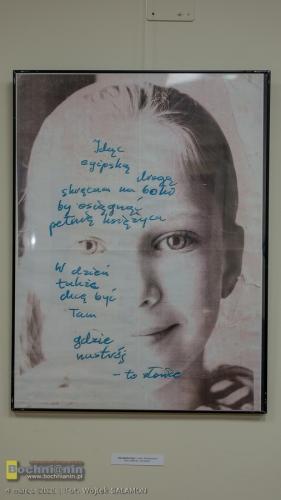 Idąc
egipską
drogą
skręcam na 60HD
by osiągnąć
pełnię księżyca
W dzień
także
chcę być
Tam
gdzie
nastrój
- to słońce
Bochni@nin
www.bochnianin.pl
4 marca 2023 | Fot. Wojtek SALAMON